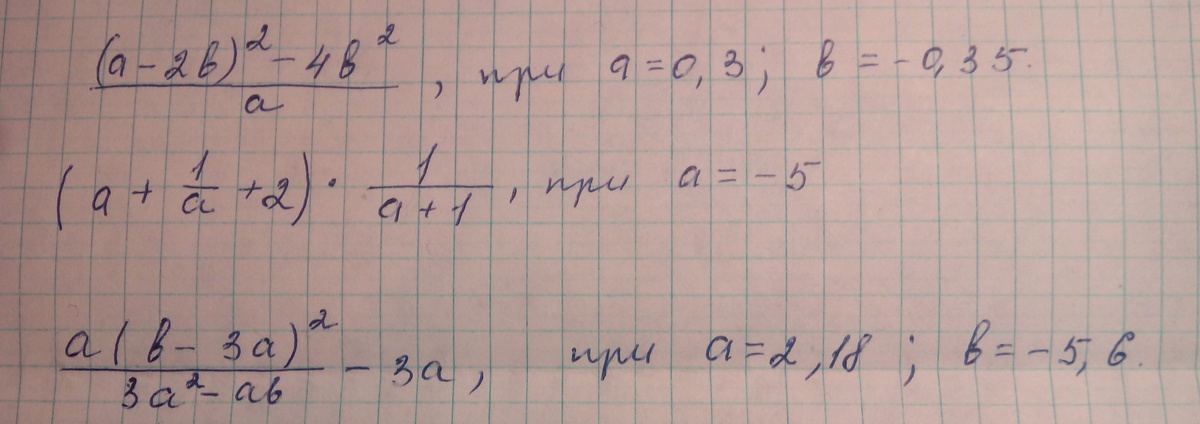 (a-2b)²-4b²/a, при a=0,3; b=-0,35.
(a+1/a+2)·1/(a+1), при a=-5
a(b-3a)²/(3a²-ab)-3a, при a=2,18; b=-5,6.